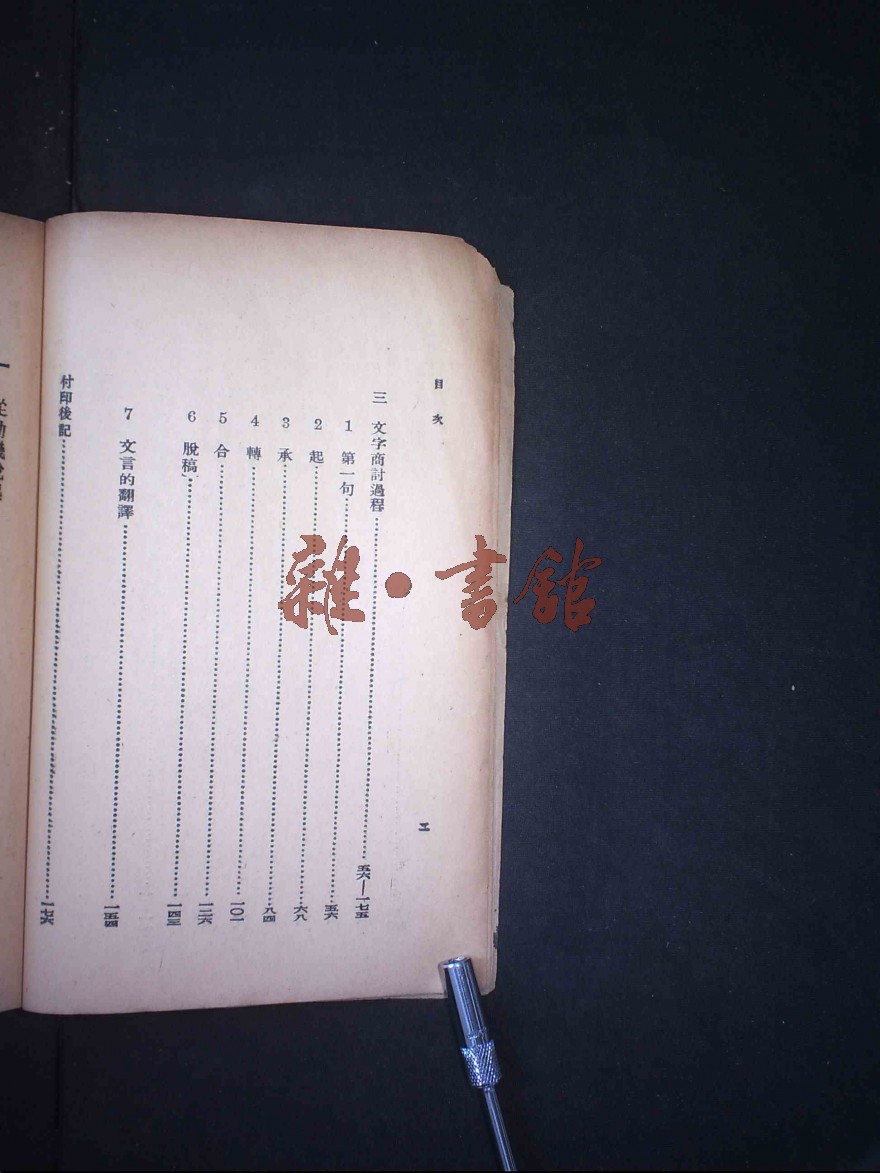 目次
三 文字商討過程……五六—一七五
1 第一句……五六
2 起……六八
3 承……八四
4 轉……一〇一
5 合……一二六
6 脫稿……一四三
7 文言的翻譯……一五四
付印後記……一七六
雜·書館